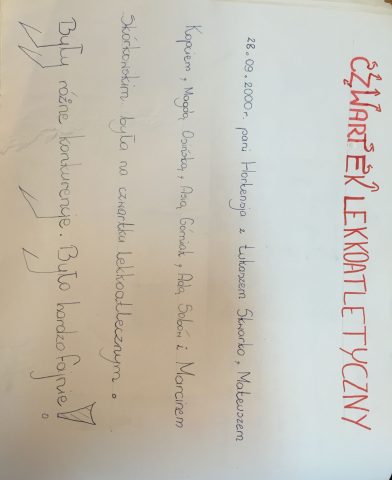 CZWARTEK LEKKOATLETYCZNY
28.09.2000r. pani Hortensja z Łukaszem Skwarło, Mateuszem
Kopciem, Magdą Osińską, Asią Górniak, Adą Soboń i Marcinem
Skórkowskim była na czwartku lekkoatlecznym.
Były różne konkurencje. Było bardzo fajnie!